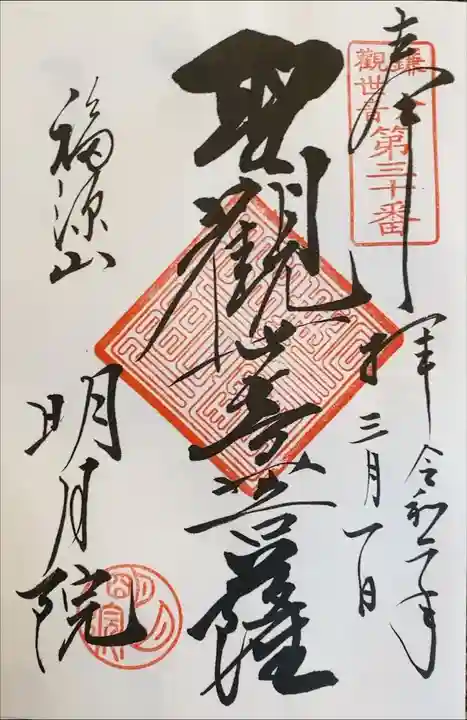 奉拝
令和二年
三月一日
鎌倉
觀世音
第三十番
聖觀世音菩薩
福源山
明月院